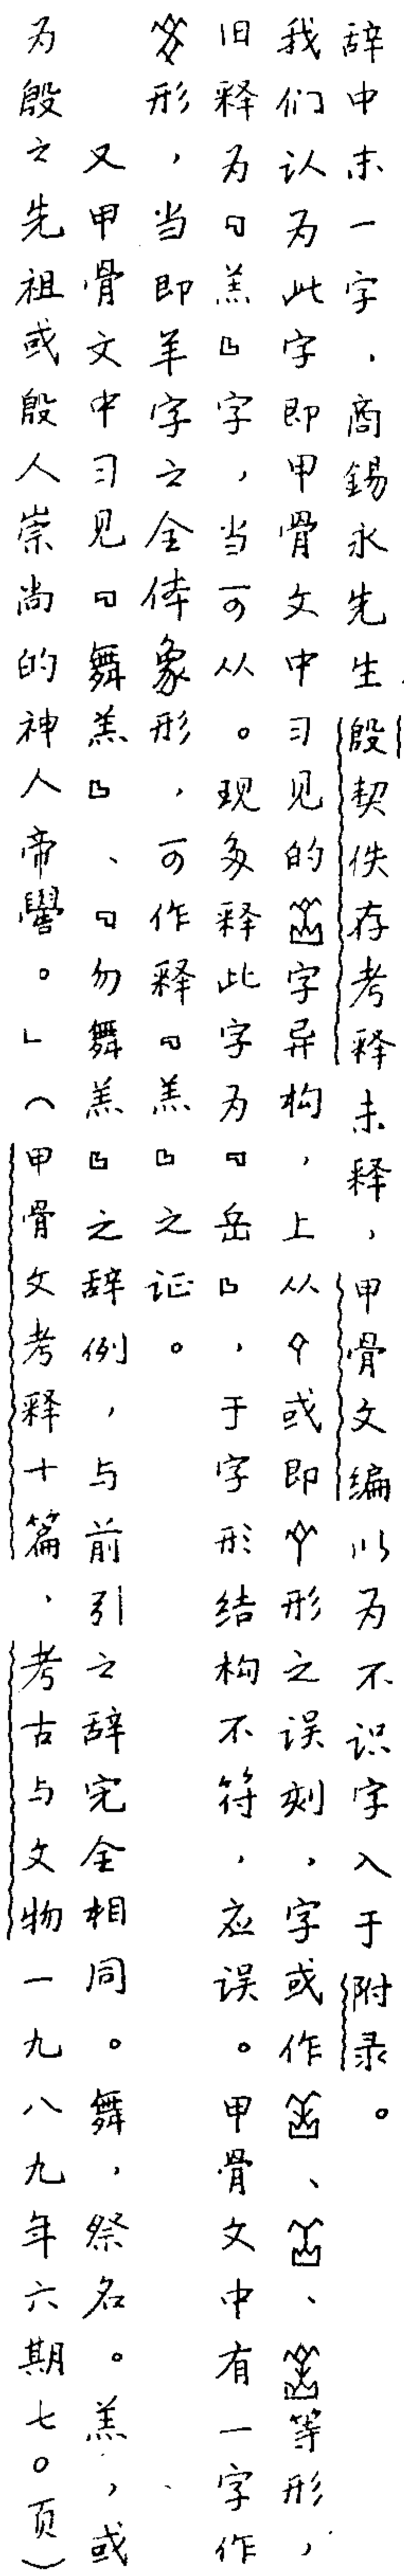 辞中末一字，商锡永先生殷契佚存考释未释，甲骨文编以为不识字入于附录。
我们认为此字即甲骨文中习见的字异构，上从或即形之误刻，字或作、、等形，
旧释为『羔』字，当可从。现多释此字为『岳』，于字形结构不符，应误。甲骨文中有一字作
形，当即羊字之全体象形，可作释『羔』之证。
又甲骨文中习见『舞羔』、『勿舞羔』之辞例，与前引之辞完全相同。舞，祭名。羔，或
为殷之先祖或殷人崇尚的神人帝喾。」（甲骨文考释十篇，考古与文物一九八九年六期七〇页）